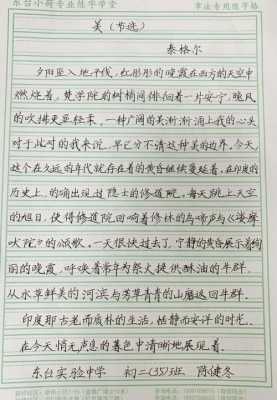 东台小荷专业练字学堂 专业专用练字格
美(节选)
泰格尔
夕阳坠入地平线,红彤彤的晚霞在西方的天空中
燃烧着,梵学院的树梢间徘徊着一片安宁,晚风
的吹拂更显轻柔,一种广阔的美渐渐涌上我的心头
对于此时的我来说,早已分不清这种美的边界,今天
这个在久远的年代就存在着的黄昏继续蔓延着,在印度的
历史上,的确出现过隐士的修道院,每天跳上天空
的旭日,使得修道院回响着修林的鸟啼声与《娑摩
吠陀》的颂歌,一天很快过去了,宁静的黄昏展示着绚
丽的晚霞,呼唤着常年为祭火提供酥油的牛群,
从水草鲜美的河滨与芳草青青的山麓返回牛群.
印度那古老而质朴的生活,恬静而安详的时光.
在今天悄无声息的暮色中清晰地展现着.
东台实验中学 初二(35)班 陈健冬